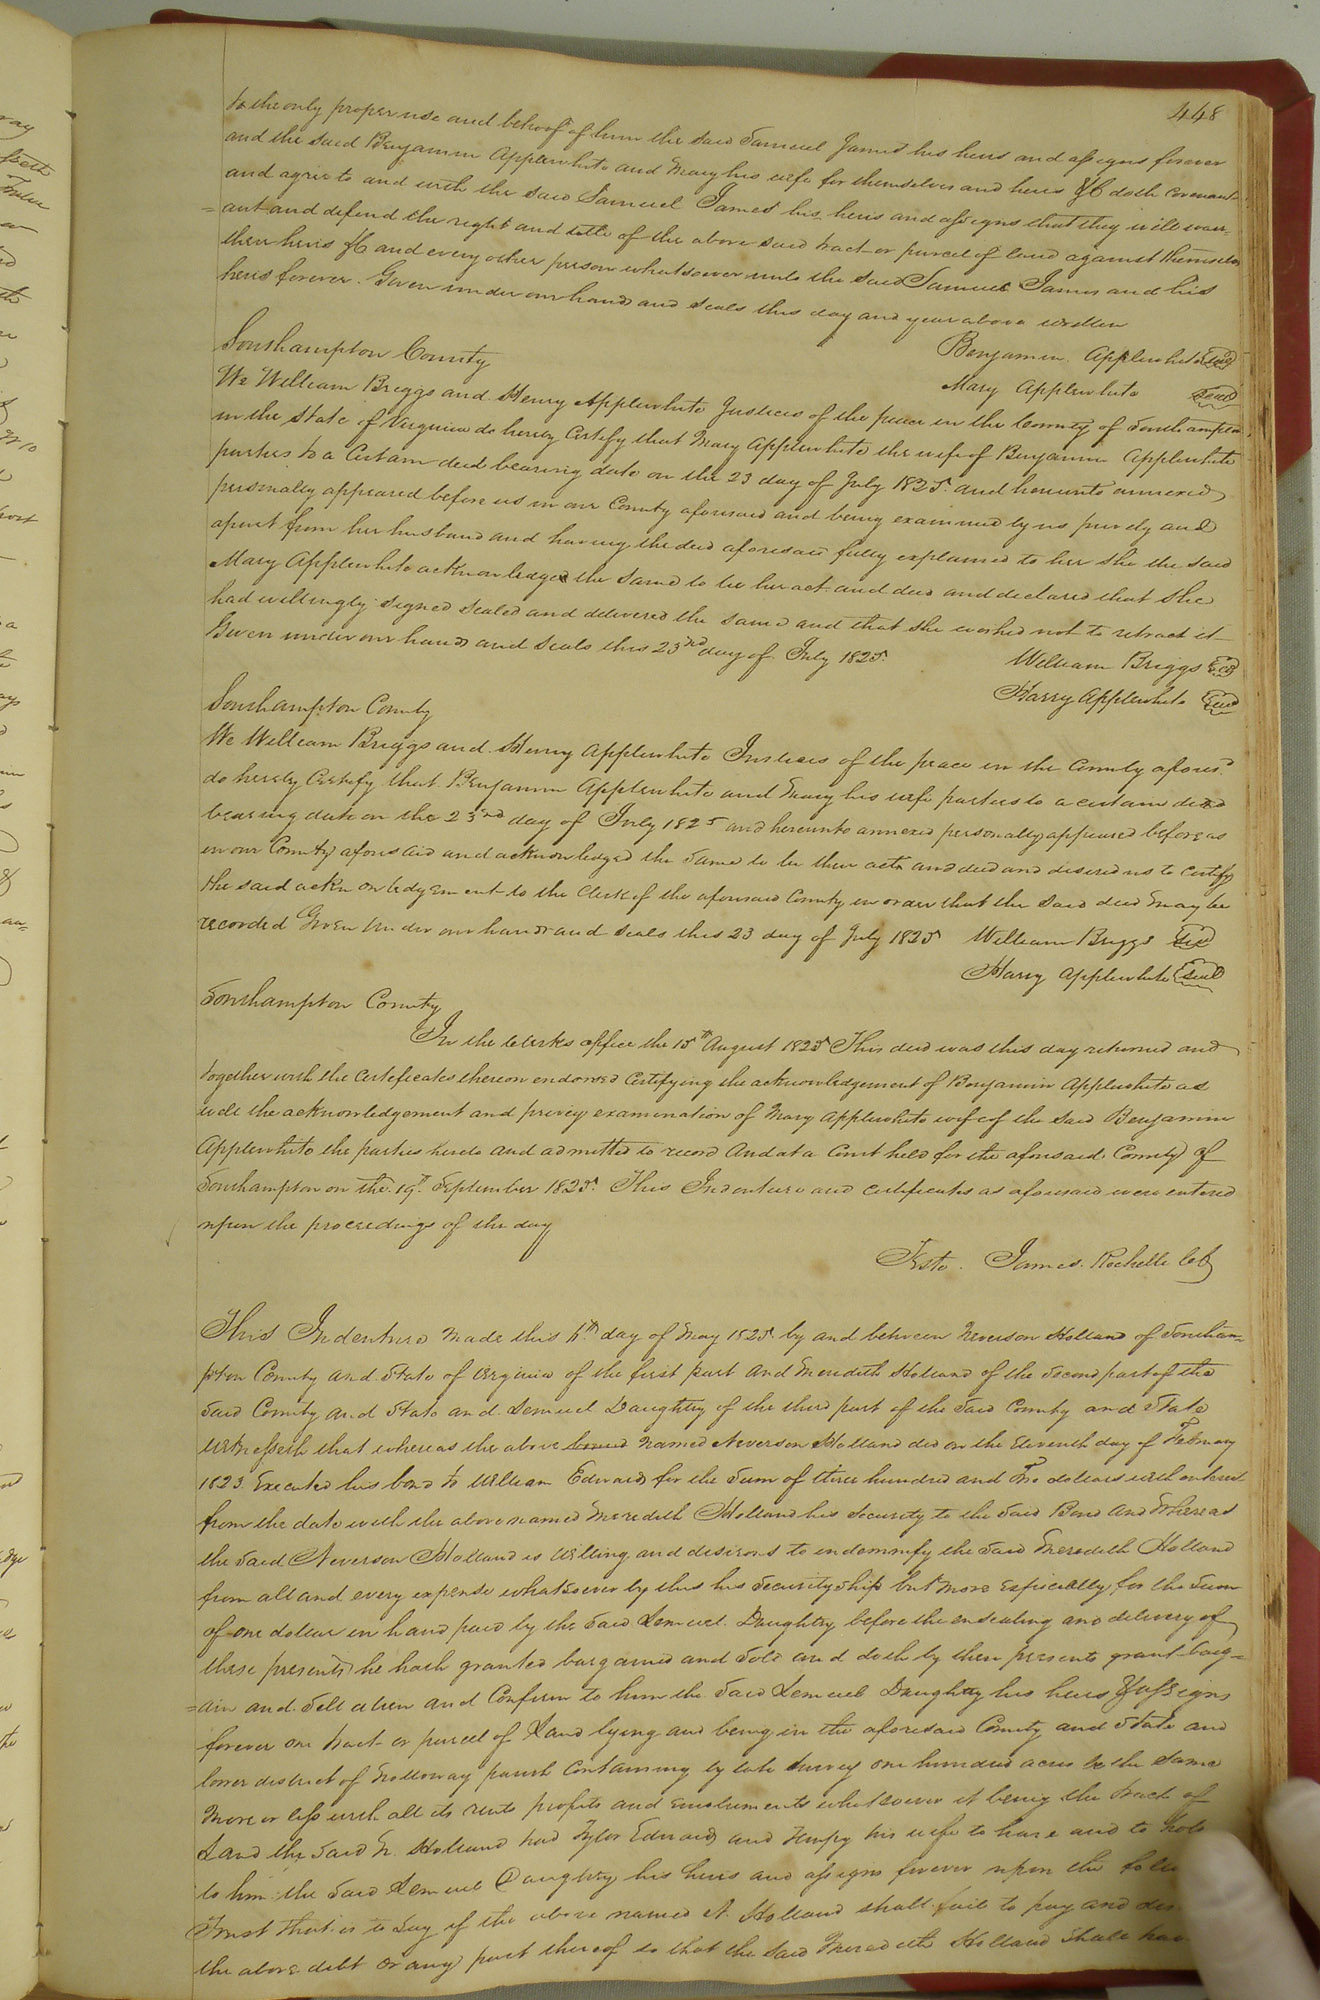 448
to the only proper use and behoof of him the said Samuel James his heirs and assigns forever
and the said Benjamin Applewhite and Mary his wife for themselves and heirs &c doth covenant
and agree to and with the said Samuel James his heirs and assigns that they will warr-
=ant and defend the right and title of the above said tract or parcel of land against themselves
their heirs &c and every other person whatsoever unto the said Samuel James and his
heirs forever. Given under our hands and seals this day and year above written
Benjamin Applewhite Seal
Mary Applewhite Seal
Southampton County
We William Briggs and Henry Applewhite Justices of the peace in the County of Southampton
in the State of Virginia do hereby Certify that Mary Applewhite the wife of Benjamin Applewhite
parties to a Certain deed bearing date on the 23 day of July 1825. and hereunto annexed
personally appeared before us in our County aforesaid and being examined by us privily and
apart from her husband and having the deed aforesaid fully explained to her she the said
Mary Applewhite acknowledged the same to be her act and deed and declared that she
had willingly signed sealed and delivered the same and that she wished not to retract it
Given under our hands and seals this 23rd day of July 1825.
William Briggs Seal
Harry Applewhite Seal
Southampton County
We William Briggs and Henry Applewhite Justices of the peace in the County afores.d
do hereby Certify that Benjamin Applewhite and Mary his wife parties to a certain deed
bearing date on the 23rd day of July 1825 and hereunto annexed personally appeared before us
in our County aforesaid and acknowledged the same to be their acts and deed and desired us to certify
the said acknowledgement to the Clerk of the aforesaid County in order that the said deed may be
recorded Given under our hands and seals this 23 day of July 1825 William Briggs Seal
Harry Applewhite Seal
Southampton County
In the Clerks office the 15th August 1825 This deed was this day returned and
together with the Certificates thereon endorsed Certifying the acknowledgement of Benjamin Applewhite as
well the acknowledgement and privy examination of Mary Applewhite wife of the said Benjamin
Applewhite the parties hereto and admitted to record And at a Court held for the aforesaid County of
Southampton on the 19th September 1825. This Indenture and certificates as aforesaid were entered
upon the proceedings of the day
Teste. James Rochelle
This Indenture made this day of May 1825 by and between Neverson Holland of Southam-
pton County and State of Virginia of the first part and Meredith Holland of the Second part of the
Said County and State and Lemuel Daughtry of the third part of the Said County and State
Witnesseth that whereas the above named Neverson Holland did on the eleventh day of February
1823 Executed his bond to William Edwards for the Sum of three hundred and dollars with interest
from the date with the above named Meredith Holland his Security to the Said Bond And Whereas
the Said Neverson Holland is Willing and desirous to indemnify the Said Meredith Holland
from all and every expense whatsoever by this his Securityship but more Especially for the Sum
of one dollar in hand paid by the Said Lemuel Daughtry before the ensealing and delivery of
these presents he hath granted bargained and Sold and doth by these presents grant barg=
=ain and Sell alien and Confirm to him the Said Lemuel Daughtry his heirs & assigns
forever one tract or parcel of Land lying and being in the aforesaid County and State and
lower district of Nottoway parish Containing by late Survey one hundred acres be the Same
More or less with all its rents profits and Emoluments whatsoever it being the tract of
Land the Said N. Holland had Edwards and his wife to have and to hold
to him the Said Lemuel Daughtry his heirs and assigns forever upon the
Trust that is to Say if the above named N. Holland shall fail to pay and
the above debt or any part thereof so that the Said Meredith Holland Shall